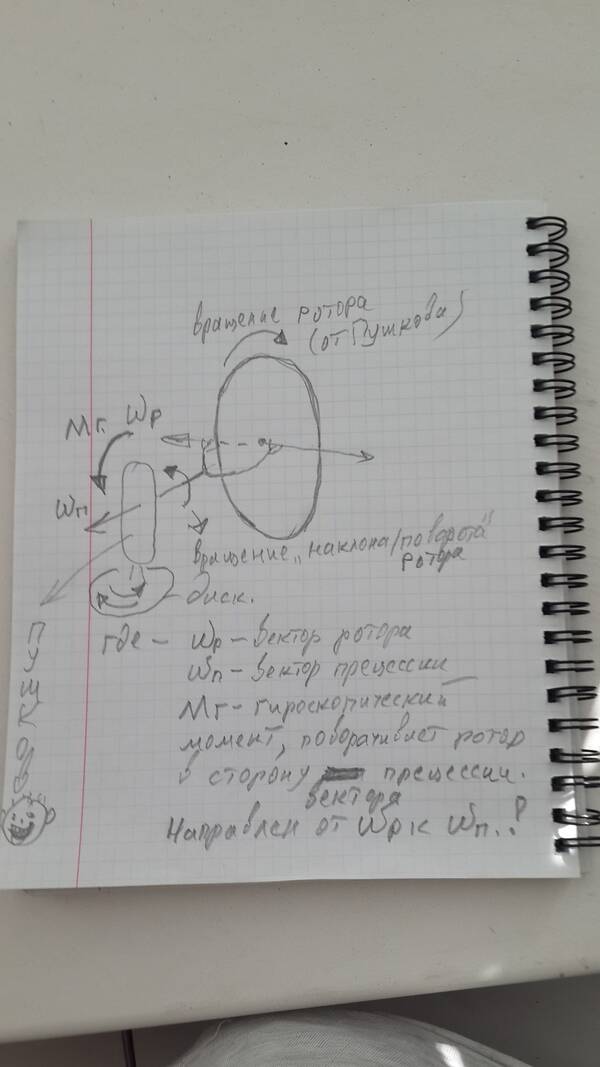 вращение ротора
(от Пушкова)
Mг. Wр
Wп
вращение „наклона/поворота"
ротора
диск.
где – Wр – вектор ротора
Wп – вектор прецессии
Mг – гироскопический
момент, поворачивает ротор
в сторону прецессии.
вектора
Направлен от Wр к Wп..?
ПУШКОВ